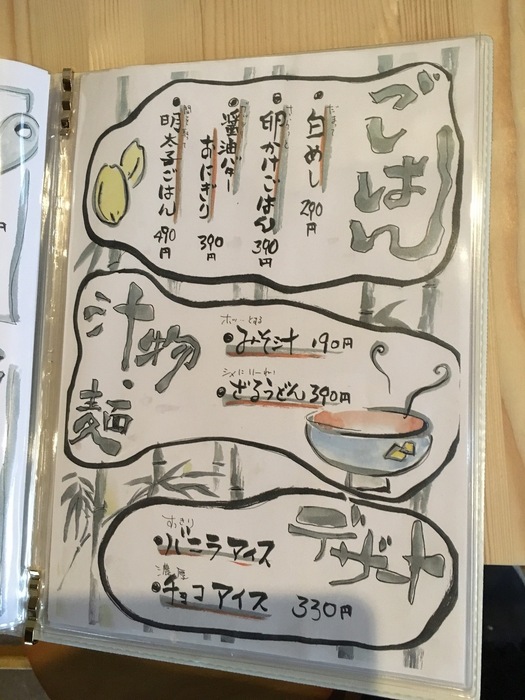 ごはん
白めし
290円
卵かけごはん
390円
醤油バター
おにぎり
390円
明太子ごはん
490円
汁物・麺
ホッとする
みそ汁 190円
ざるうどん 390円
デザート
すっきり
バニラアイス
濃厚
チョコアイス 330円